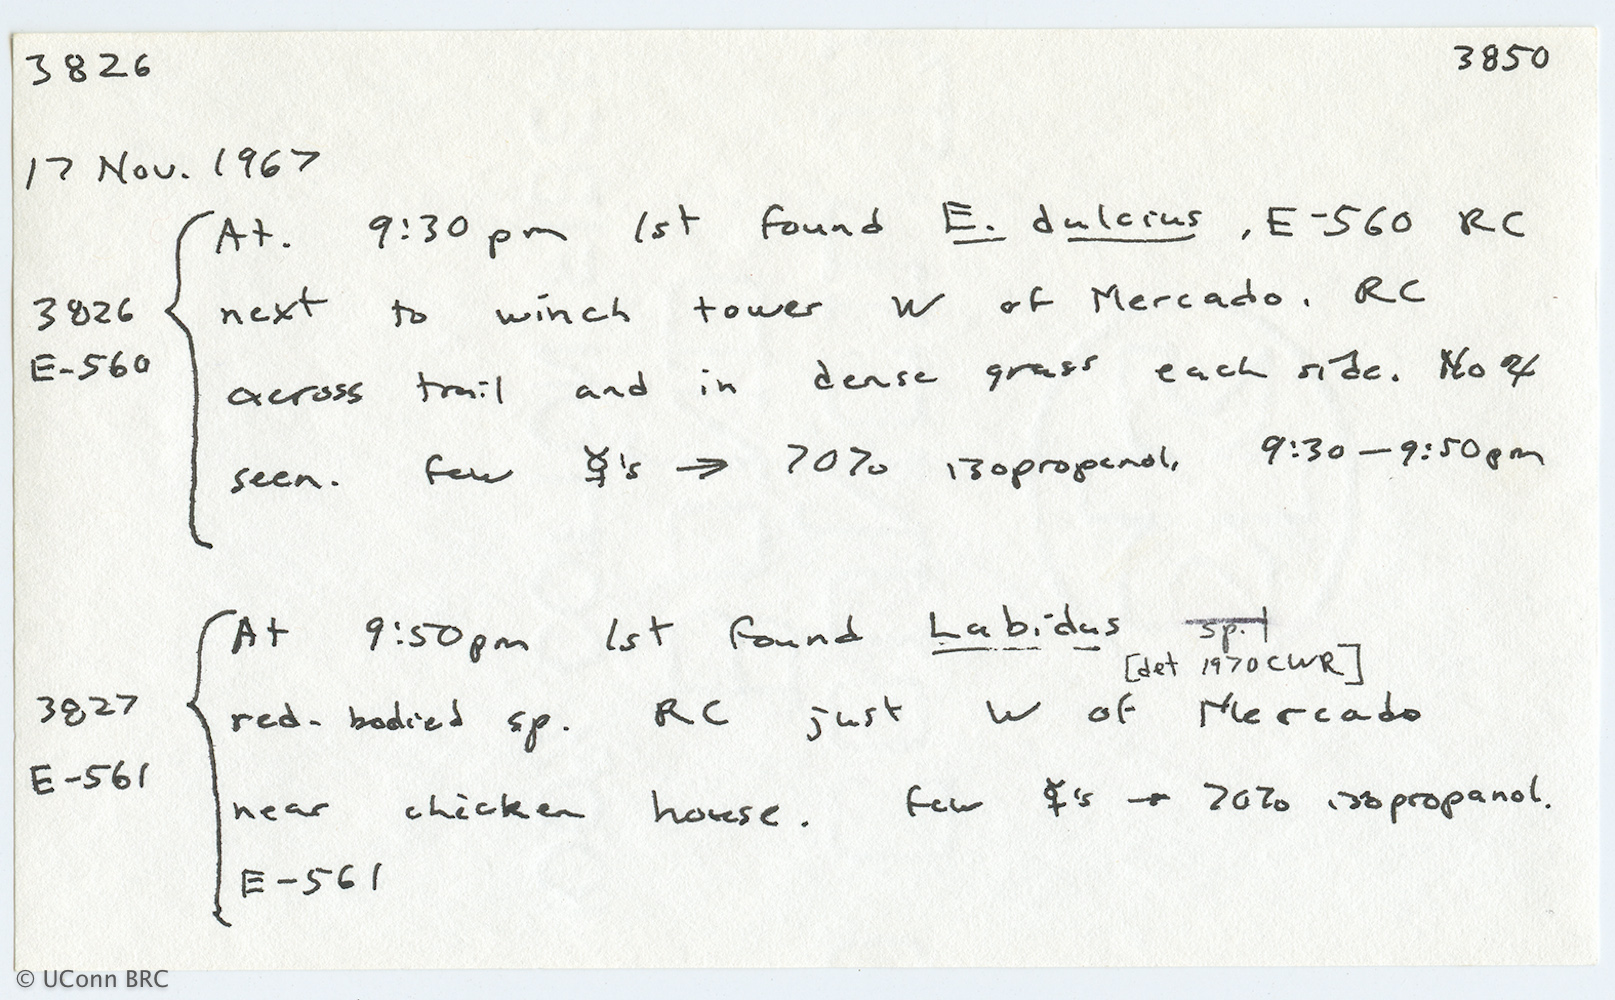 3826 3850
17 Nov. 1967
At. 9:30 pm 1st found E. dulcius, E-560 RC
3826 next to winch tower W of Mercado. RC
E-560 across trail and in dense grass each side. No ♃
seen. few ☿'s → 70% isopropanol. 9:30-9:50pm
At 9:50pm 1st found Labidus sp.
[det 1970 CWR]
3827 red-bodied sp. RC just W of Mercado
E-561 near chicken house. few ☿'s → 70% isopropanol.
E-561
© UConn BRC